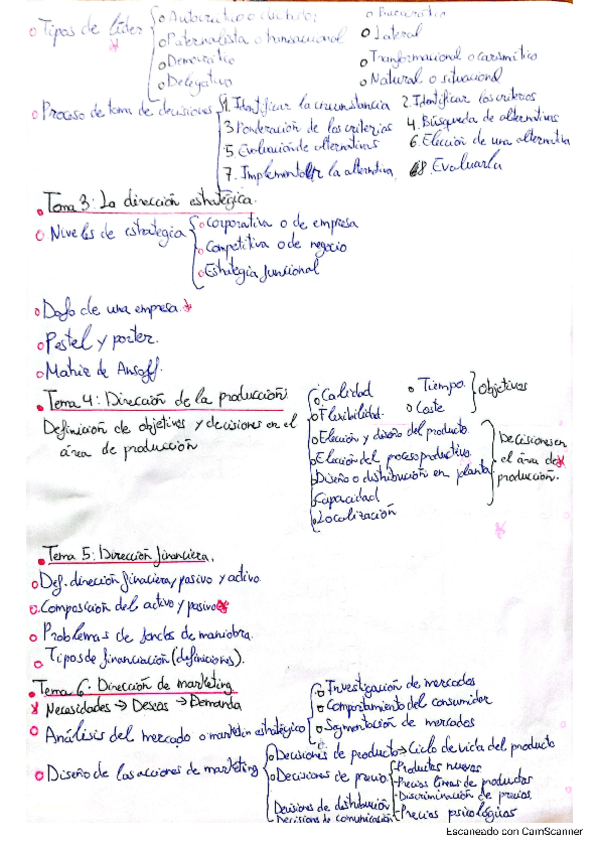 Tipos de líder
Autocrático o
Paternalista o transaccional
Democrático
Delegativo
Burocrático
Lateral
Transformacional o carismático
Natural o situacional
Proceso de toma de decisiones
1. Identificar la circunstancia 2. Identificar los criterios
3 Ponderación de los criterios 4. Búsqueda de alternativas
5 Evaluación de alternativas 6. Elección de una alternativa
7. Implementar la alternativa 8. Evaluarla
Tema 3: La dirección estratégica.
Niveles de estrategia
Corporativa o de empresa
Competitiva o de negocio
Estrategia funcional
Dafo de una empresa.
Pestel y porter.
Matriz de Ansoff.
Tema 4: Dirección de la producción.
Definición de objetivos y decisiones en el
área de producción
Calidad
Flexibilidad.
Tiempo.
Coste
Objetivos
Elección y diseño del producto.
Elección del proceso productivo.
Diseño o distribución en planta
Capacidad
Localización
Decisiones en
el área de
producción.
Tema 5: Dirección financiera.
Def. dirección financiera, pasivo y activo.
Composición del activo y pasivo
Problemas de fondos de maniobra.
Tipos de financiación (definiciones).
Tema 6. Dirección de marketing
Necesidades → Deseos → Demanda
Análisis del mercado o marketin estratégico
Investigación de mercados
Comportamiento del consumidor
Segmentación de mercados
Diseño de las acciones de marketing
Decisiones de producto → Ciclo de vida del producto
Decisiones de precio
Productos nuevos
Precios líneas de productos
Discriminación de precios
Precios psicológicos
Decisiones de distribución
Decisiones de comunicación
Escaneado con CamScanner